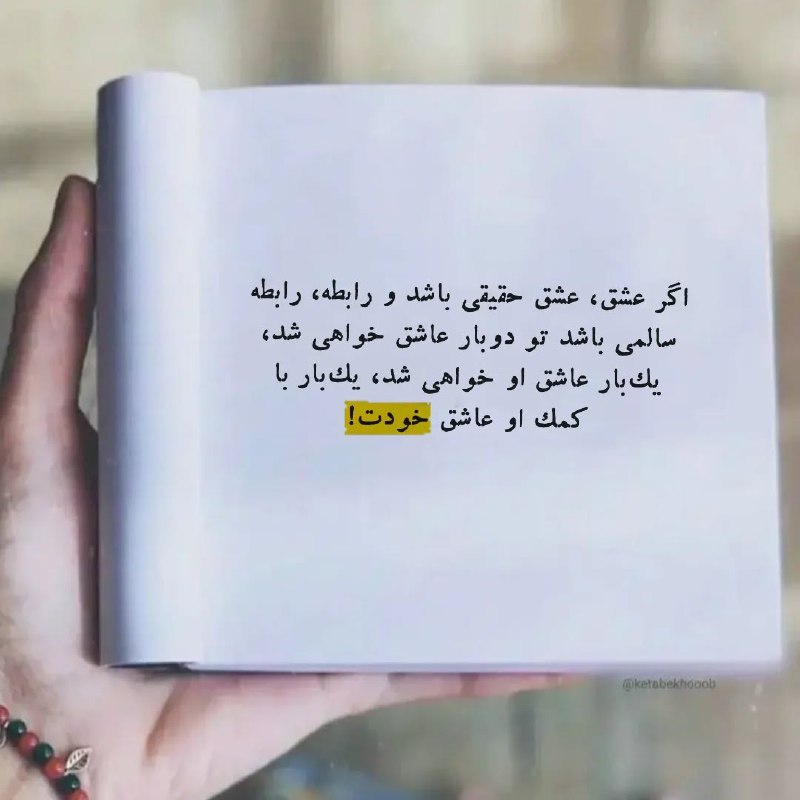 اگر عشق، عشق حقیقی باشد و رابطه، رابطه
سالمی باشد تو دوبار عاشق خواهی شد،
یك‌بار عاشق او خواهی شد، یك‌بار با
كمك او عاشق خودت!
@ketabekhooob